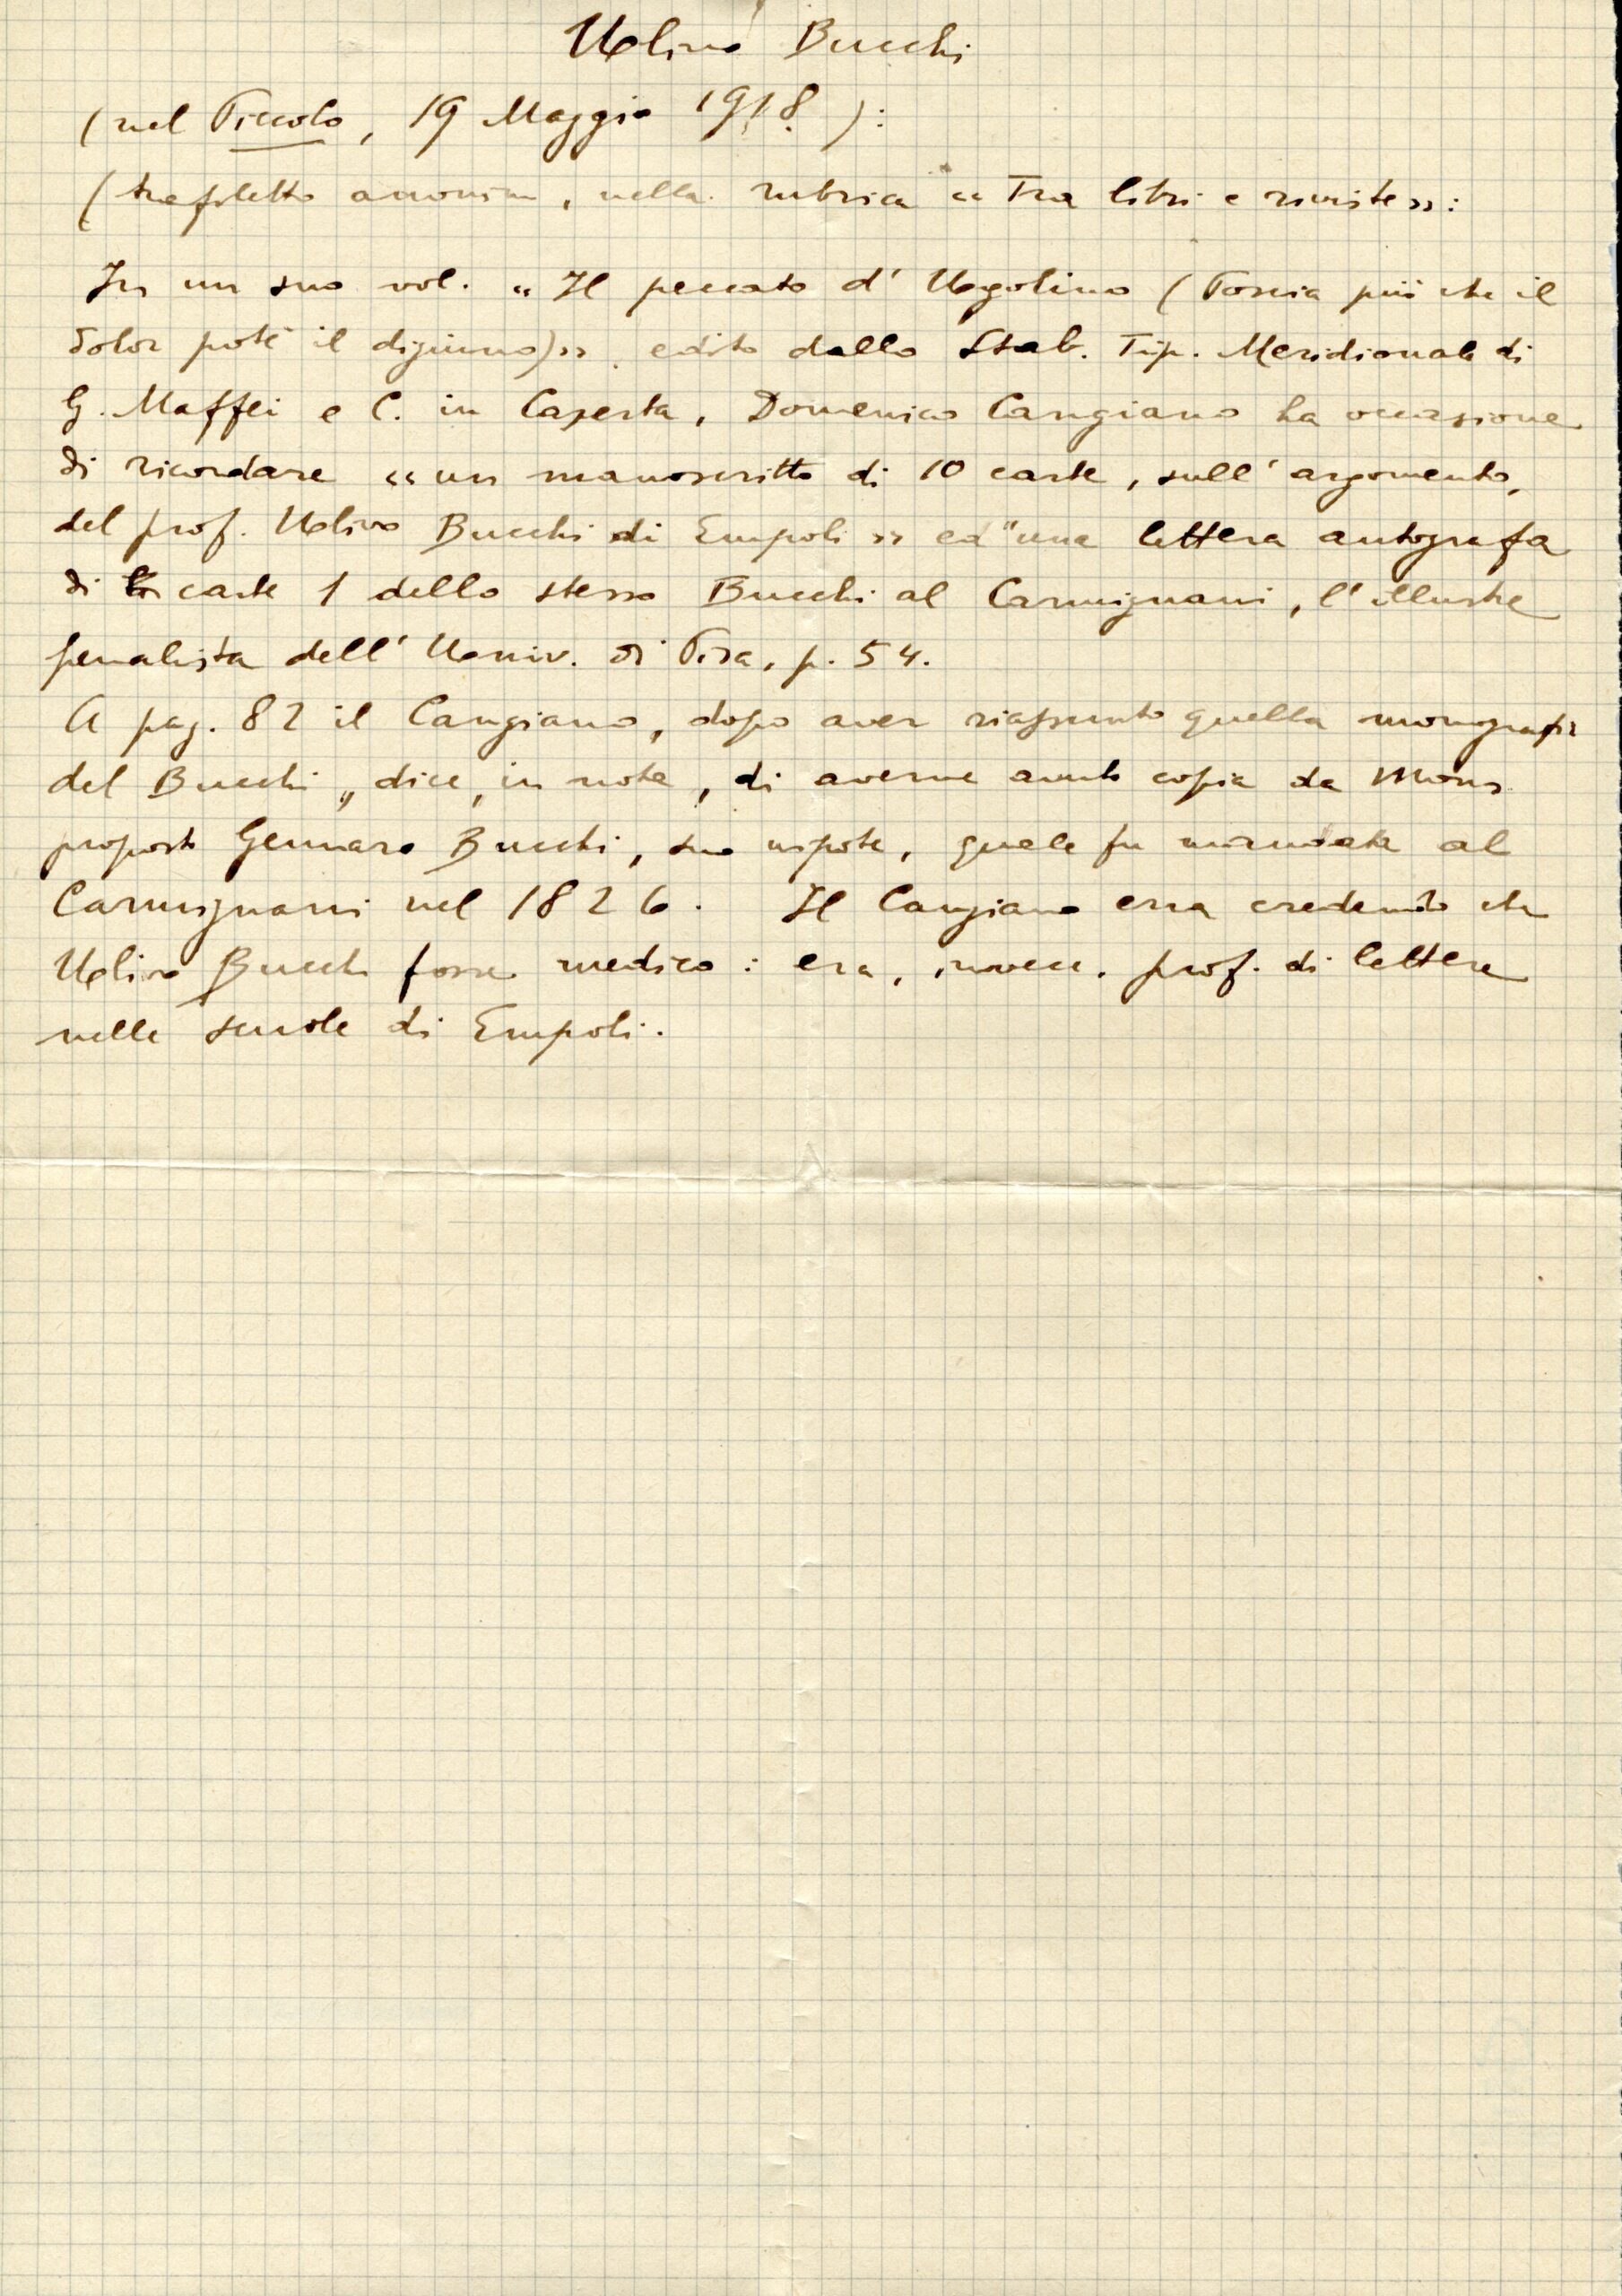 Ulivo Bucchi
(nel Piccolo, 19 Maggio 1918):
(trafiletto anonimo, nella rubrica « Tra libri e riviste»:
In un suo vol. « Il peccato d' Ugolino (Poscia più che il
dolor poté il digiuno)», edito dallo Stab. Tip. Meridionale di
G. Maffei e C. in Caserta, Domenico Cangiano ha occasione
di ricordare « un manoscritto di 10 carte, sull' argomento,
del prof. Ulivo Bucchi di Empoli » ed "una lettera autografa
di carte 1 dello stesso Bucchi al Carmignani, l' illustre
penalista dell' Univ. di Pisa, p. 54.
A pag. 82 il Cangiano, dopo aver riassunto quella monografia
del Bucchi, dice, in nota, di averne avuto copia da Mons.
proposto Gennaro Bucchi, suo nipote, quale fu mandata al
Carmignani nel 1826. Il Cangiano erra credendo che
Ulivo Bucchi fosse medico: era, invece, prof. di lettere
nelle scuole di Empoli.